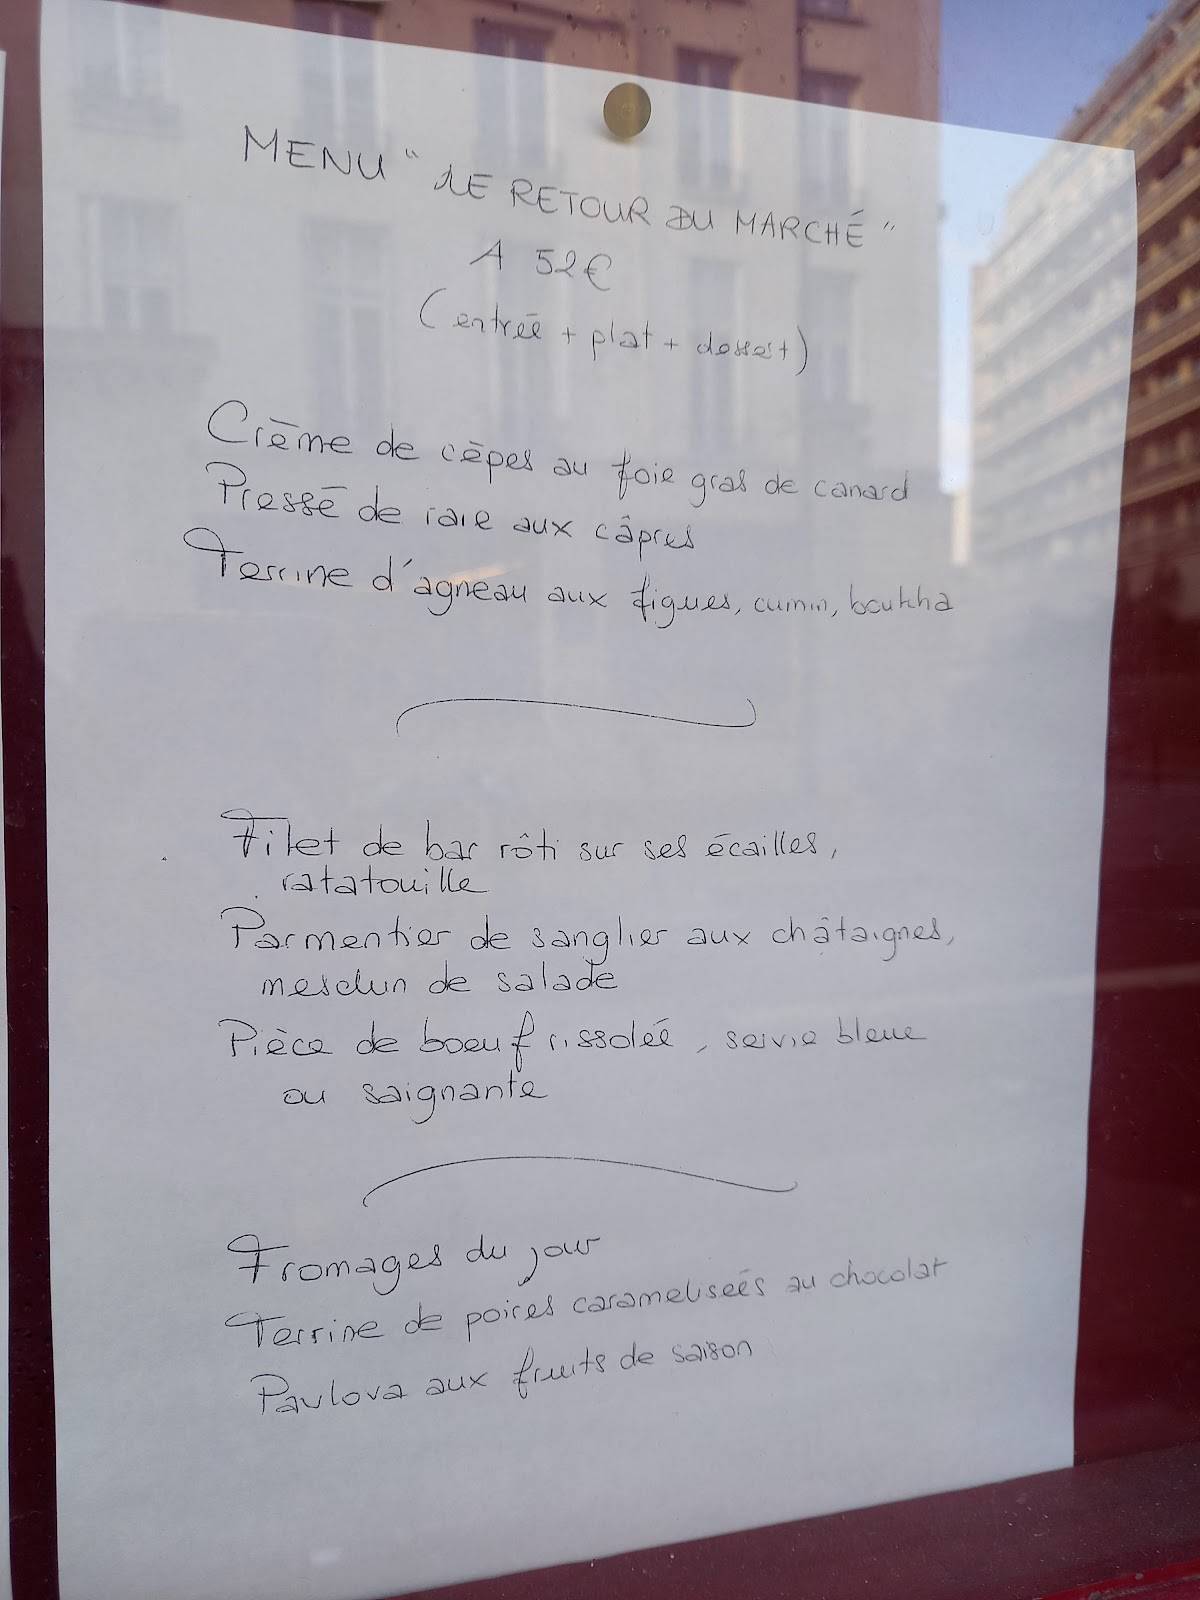 MENU "LE RETOUR DU MARCHÉ"
A 52€
(entrée + plat + dessert)
Crème de cèpes au foie gras de canard
Pressé de raie aux câpres
Terrine d'agneau aux figues, cumin, boukha
Filet de bar rôti sur ses écailles,
ratatouille
Parmentier de sanglier aux châtaignes,
mesclun de salade
Pièce de boeuf rissolée, servie bleue
ou saignante
Fromages du jour
Terrine de poires caramelisées au chocolat
Pavlova aux fruits de saison